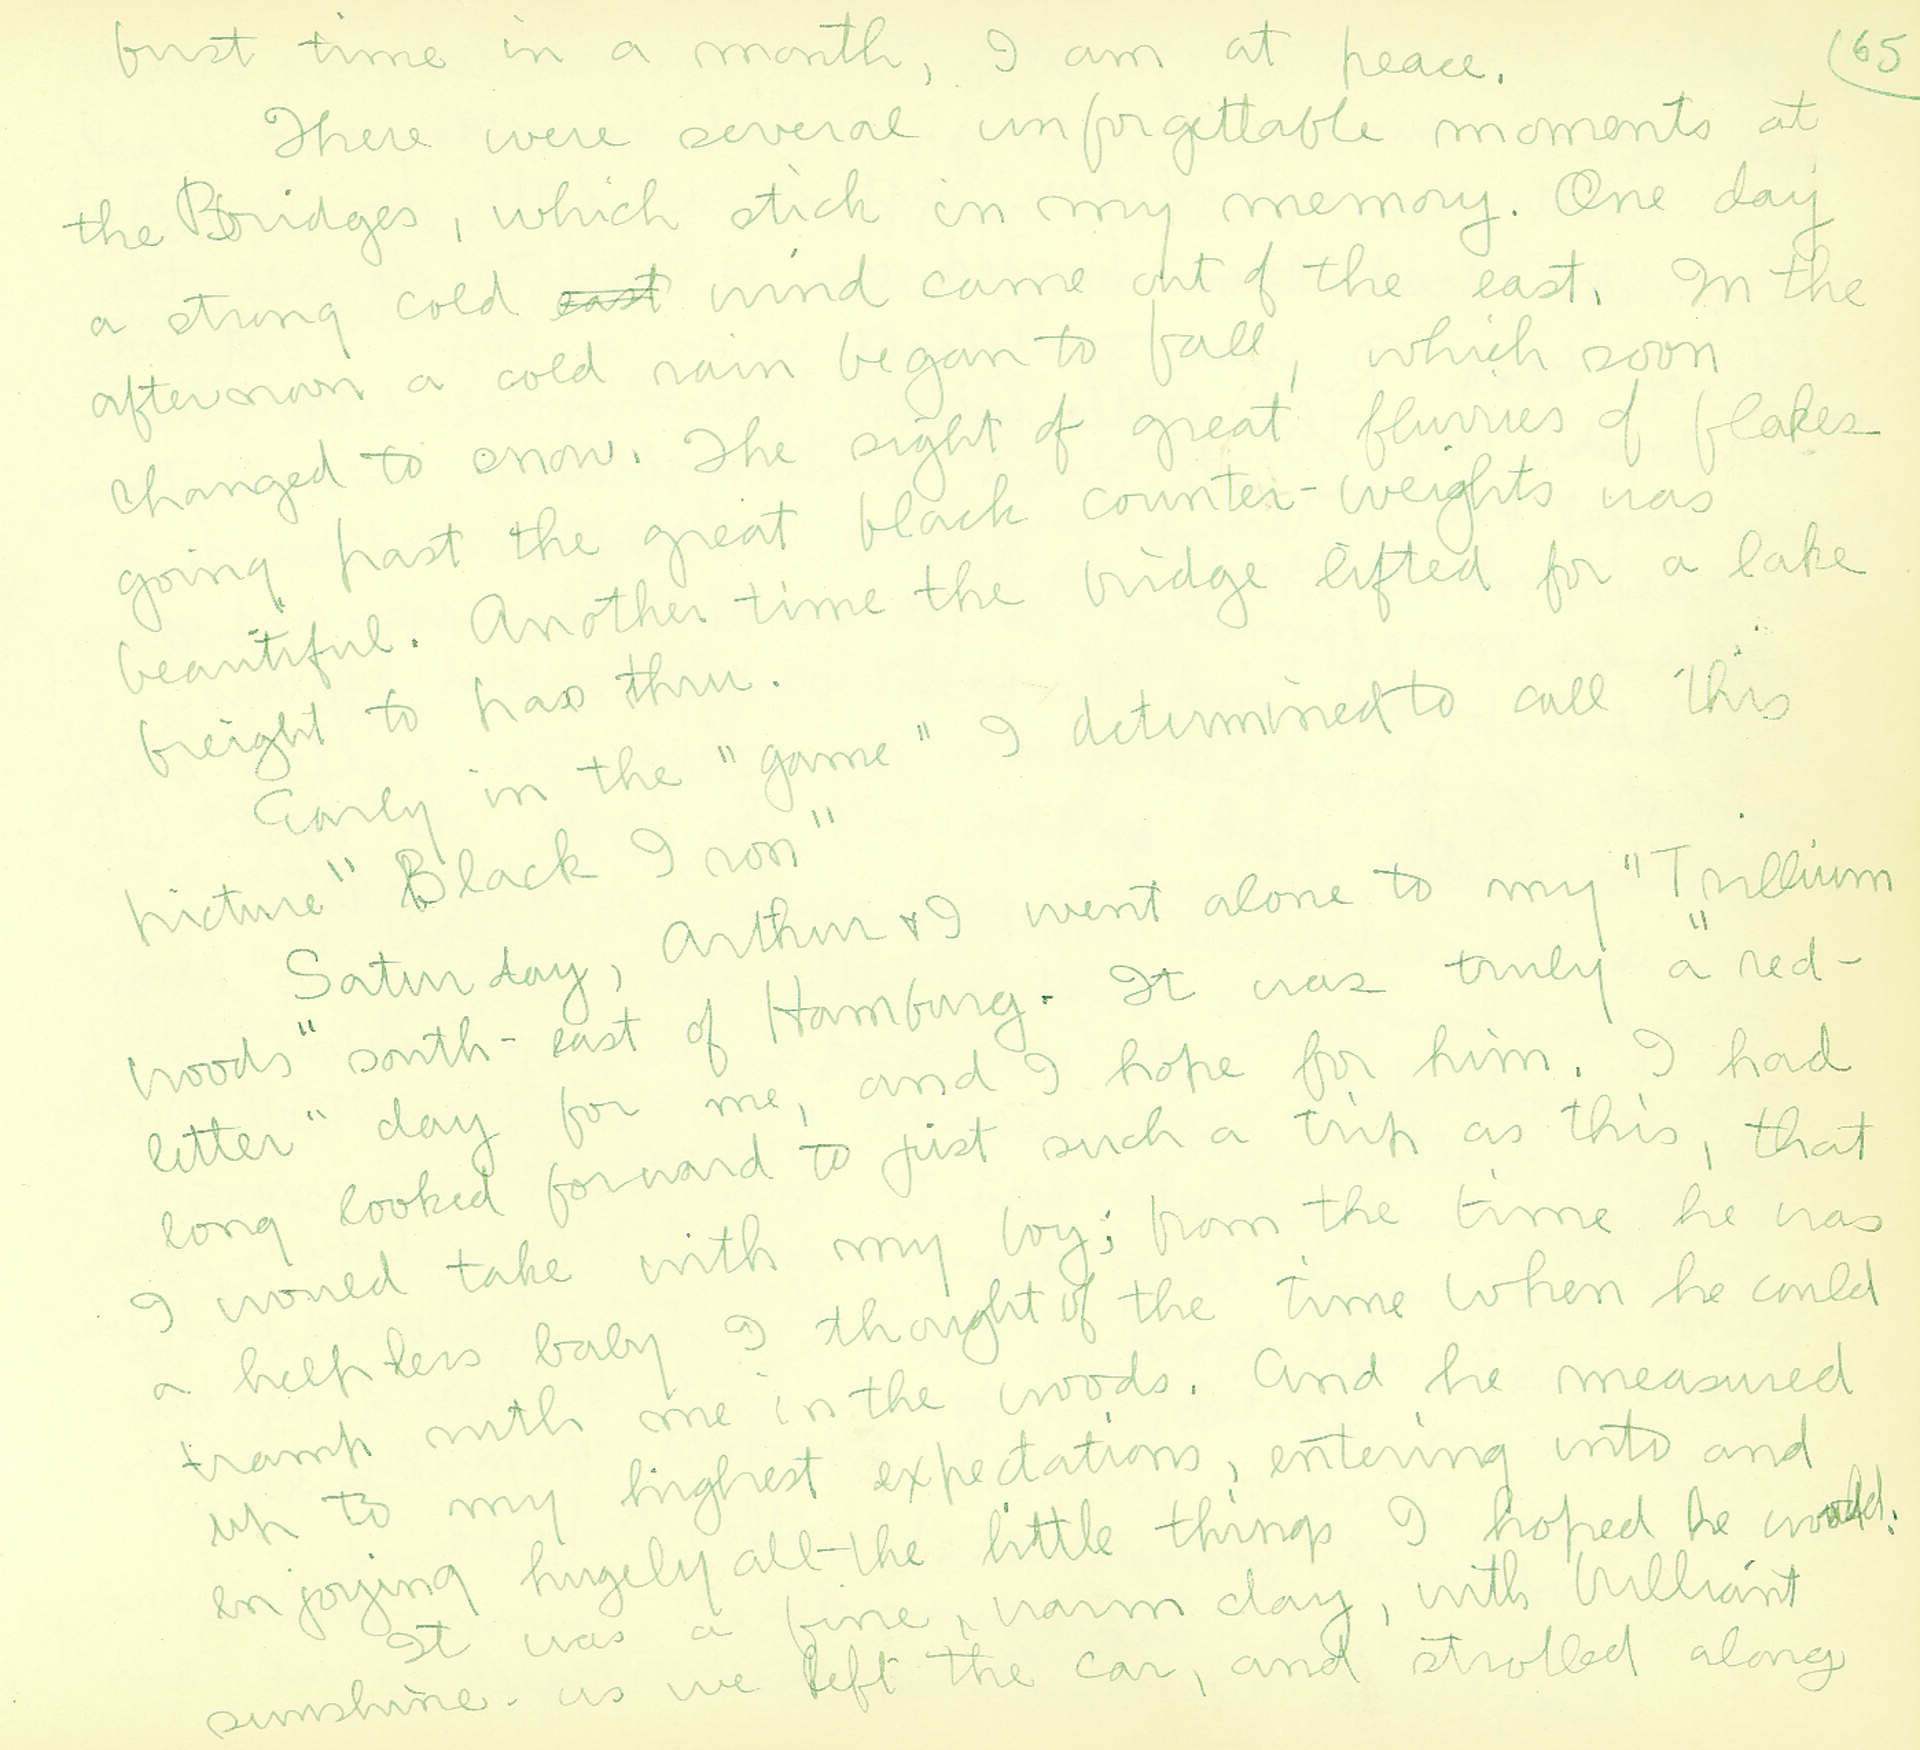 first time in a month, I am at peace. 65
There were several unforgettable moments at
the Bridges, which stick in my memory. One day
a strong cold east wind came out of the east. In the
afternoon a cold rain began to fall, which soon
changed to snow. The sight of great flurries of flakes
going past the great black counter-weights was
beautiful. Another time the bridge lifted for a lake
freight to pass thru.
Early in the "game" I determined to call this
picture "Black Iron"
Saturday, Arthur & I went alone to my "Trillium
woods" south-east of Hamburg. It was truly a "red-
letter" day for me, and I hope for him. I had
long looked forward to just such a trip as this, that
I would take with my boy; from the time he was
a helpless baby I thought of the time when he could
tramp with me in the woods. And he measured
up to my highest expectations, entering into and
enjoying hugely all the little things I hoped he would.
It was a fine, warm day, with brilliant
sunshine. as we left the car, and strolled along